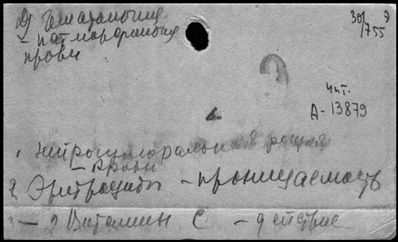 2) Гематология
30/755 9
– пат. морфология
крови
?
Чит.
А-13879
6.
1 Нейрогуморальная регуляция
– крови
2 Эритроциты – проницаемость
– 2 Витамин С – действие